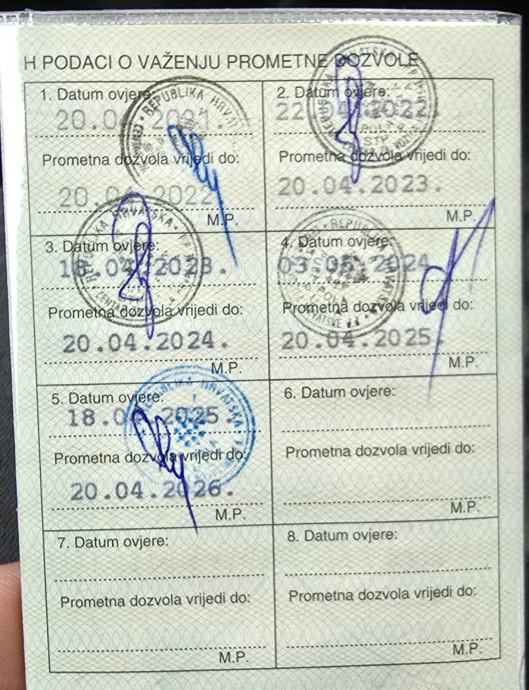 H PODACI O VAŽENJU PROMETNE DOZVOLE
1. Datum ovjere:
Prometna dozvola vrijedi do:
20.04.2022.
M.P.
2. Datum ovjere:
Prometna dozvola vrijedi do:
20.04.2023.
M.P.
3. Datum ovjere:
18.04.2023.
Prometna dozvola vrijedi do:
20.04.2024.
M.P.
4. Datum ovjere:
03.05.2024
Prometna dozvola vrijedi do:
20.04.2025.
M.P.
5. Datum ovjere:
Prometna dozvola vrijedi do:
20.04.2026.
M.P.
6. Datum ovjere:
Prometna dozvola vrijedi do:
M.P.
7. Datum ovjere:
Prometna dozvola vrijedi do:
M.P.
8. Datum ovjere:
Prometna dozvola vrijedi do:
M.P.